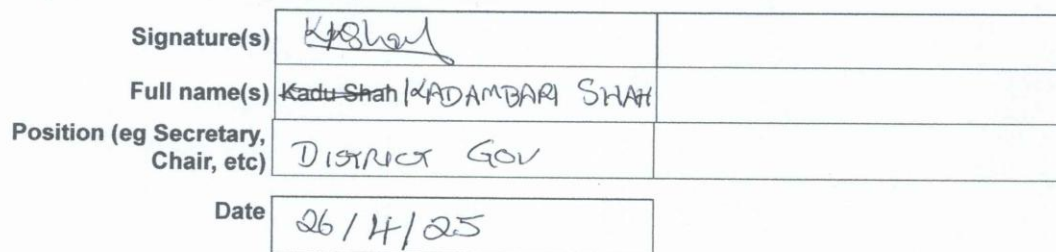 Signature(s) KPShah
Full name(s) Kadu Shah KADAMBARI SHAH
Position (eg Secretary,
Chair, etc) DISTRICT GOV
Date 26/4/25